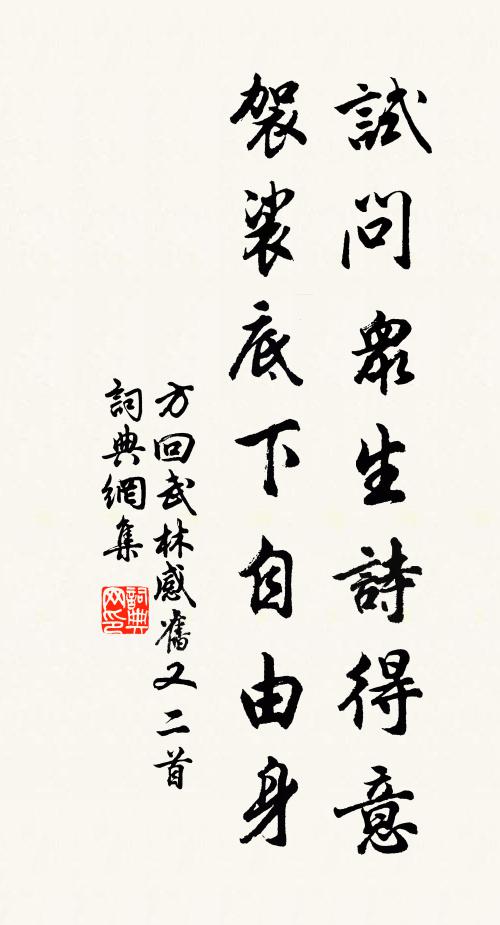 試問眾生詩得意
袈裟底下自由身
方回武林感舊又二首
詞典網集
詞典网印